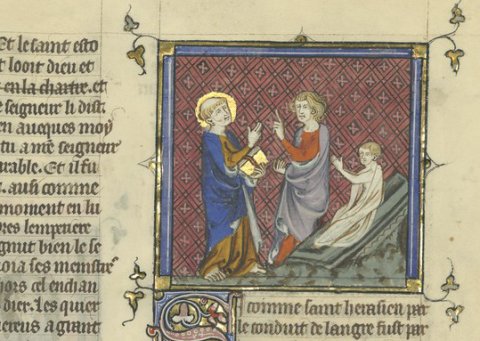 Et le saint esto
t looit dieu et
en la chartre. et
e seigneur li dist.
en auecques moy
tu a me seigneur
urable. Et il fu
. ausi comme
moment en lu
res lempetere
gnut bien le se
iors cel enchan
dier. Les quier
uereus agiant
comme saint herasien par
le conduit de langre fust par